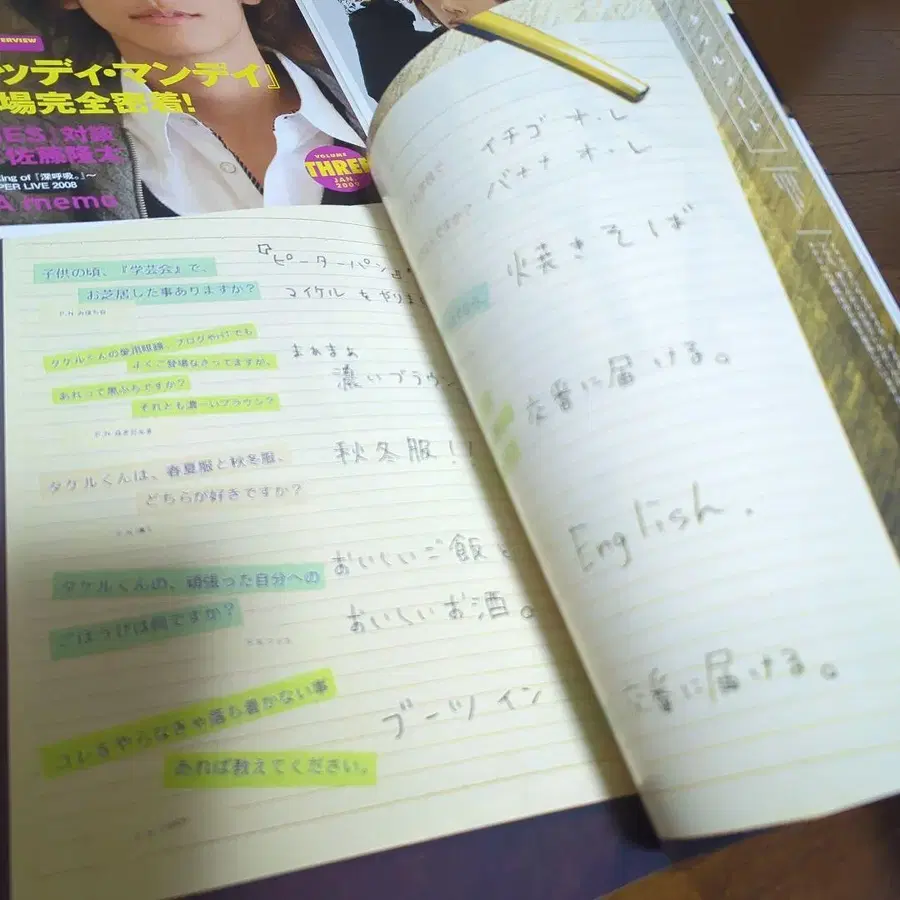 ERVIEW
ッディ・マンデイ』
場完全密着!
ES」対談
佐藤隆太
ing of『深呼吸。』～
PER LIVE 2008
A memo
VOLUME
THREE
JAN.
2009
子供の頃、『学芸会』で、
お芝居した事ありますか?
『ピーターパン』
マイケル をやりま
タケルくんの愛用眼鏡、ブログやHTでも
よくご登場なさってますが、
あれって黒ぶちですか?
それとも濃ーいブラウン?
まぁまぁ
濃いブラウン
タケルくんは、春夏服と秋冬服、
どちらが好きですか?
秋冬服!!
タケルくんの、頑張った自分への
ごほうびは何ですか?
おいしいご飯と
おいしいお酒。
コレをやらなきゃ落ち着かない事
あれば教えてください。
ブーツ イン
イチゴ オ・レ
バナナ オ・レ
焼きそば
交番に届ける。
English.
交番に届ける。